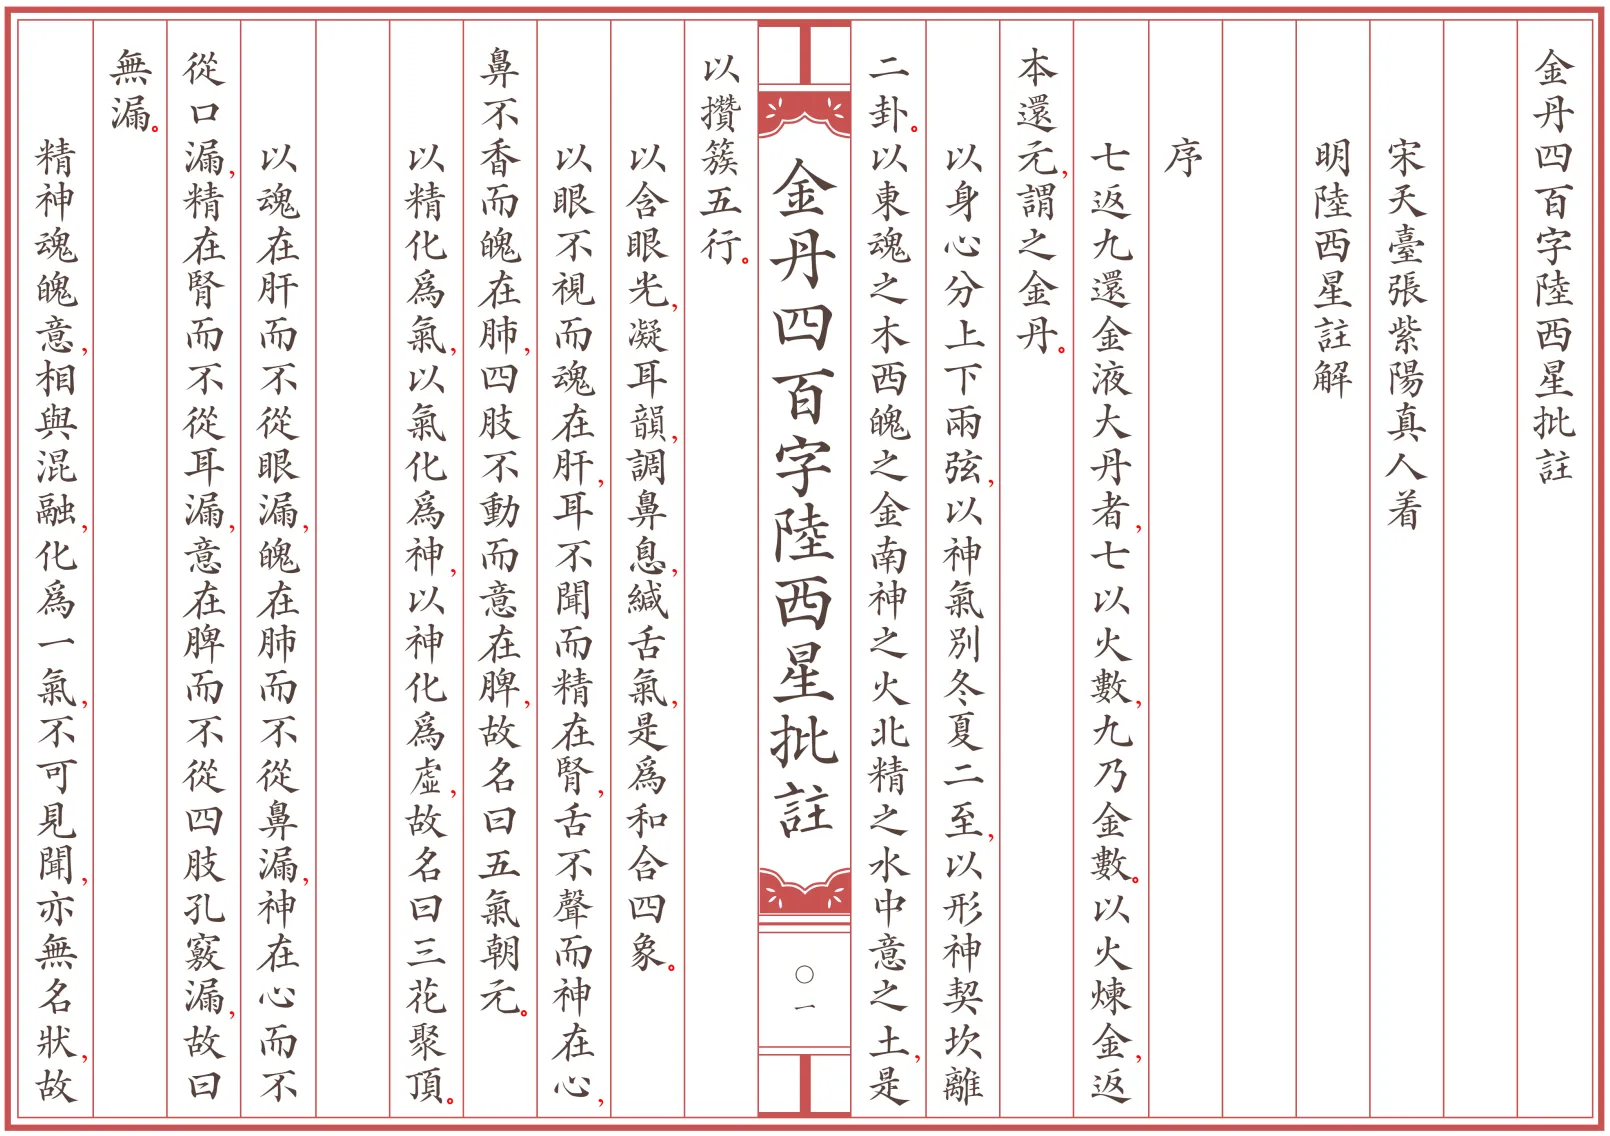 金丹四百字陸西星批註
宋天臺張紫陽真人着
明陸西星註解
序
七返九還金液大丹者，七以火數，九乃金數。以火煉金，返
本還元，謂之金丹。
以身心分上下兩弦，以神氣別冬夏二至，以形神契坎離
二卦。以東魂之木西魄之金南神之火北精之水中意之土，是
金丹四百字陸西星批註
〇一
以攢簇五行。
以含眼光，凝耳韻，調鼻息，緘舌氣，是爲和合四象。
以眼不視而魂在肝，耳不聞而精在腎，舌不聲而神在心，
鼻不香而魄在肺，四肢不動而意在脾，故名曰五氣朝元。
以精化爲氣，以氣化爲神，以神化爲虛，故名曰三花聚頂。
以魂在肝而不從眼漏，魄在肺而不從鼻漏，神在心而不
從口漏，精在腎而不從耳漏，意在脾而不從四肢孔竅漏，故曰
無漏。
精神魂魄意，相與混融，化爲一氣，不可見聞，亦無名狀，故